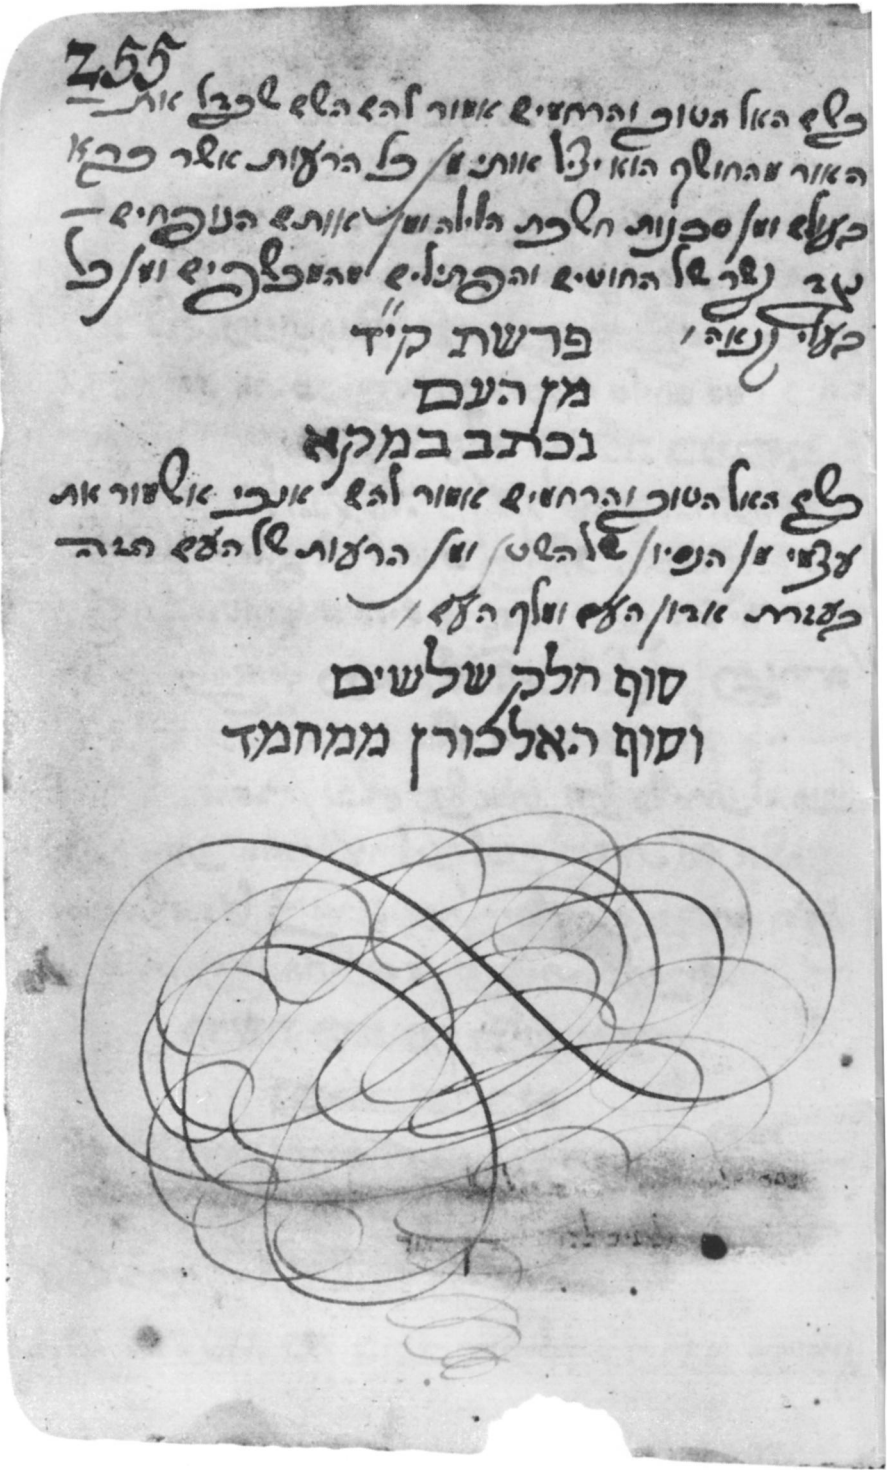 255
בשם האל הטוב והרחמים אמור להם השם שבדל את
האור מהחושך הוא יציל אותי מן כל הרעות אשר ברא
בעולם ומן סכנות חשכת הלילה ומן אותם הנופחים
נשר של החוטים והפתילים מהמכשפים ומן כל
בעלי קנאה
פרשת קי״ד
מן העם
נכתב במקא
בשם האל הטוב והרחמים אמור להם אנכי אשמור את
עצמי מן הנסיון של השטן ומן הרעות של העם הבה
בעברת אדון העם ומלך העם
סוף חלק שלשים
וסוף האלכורן ממחמד